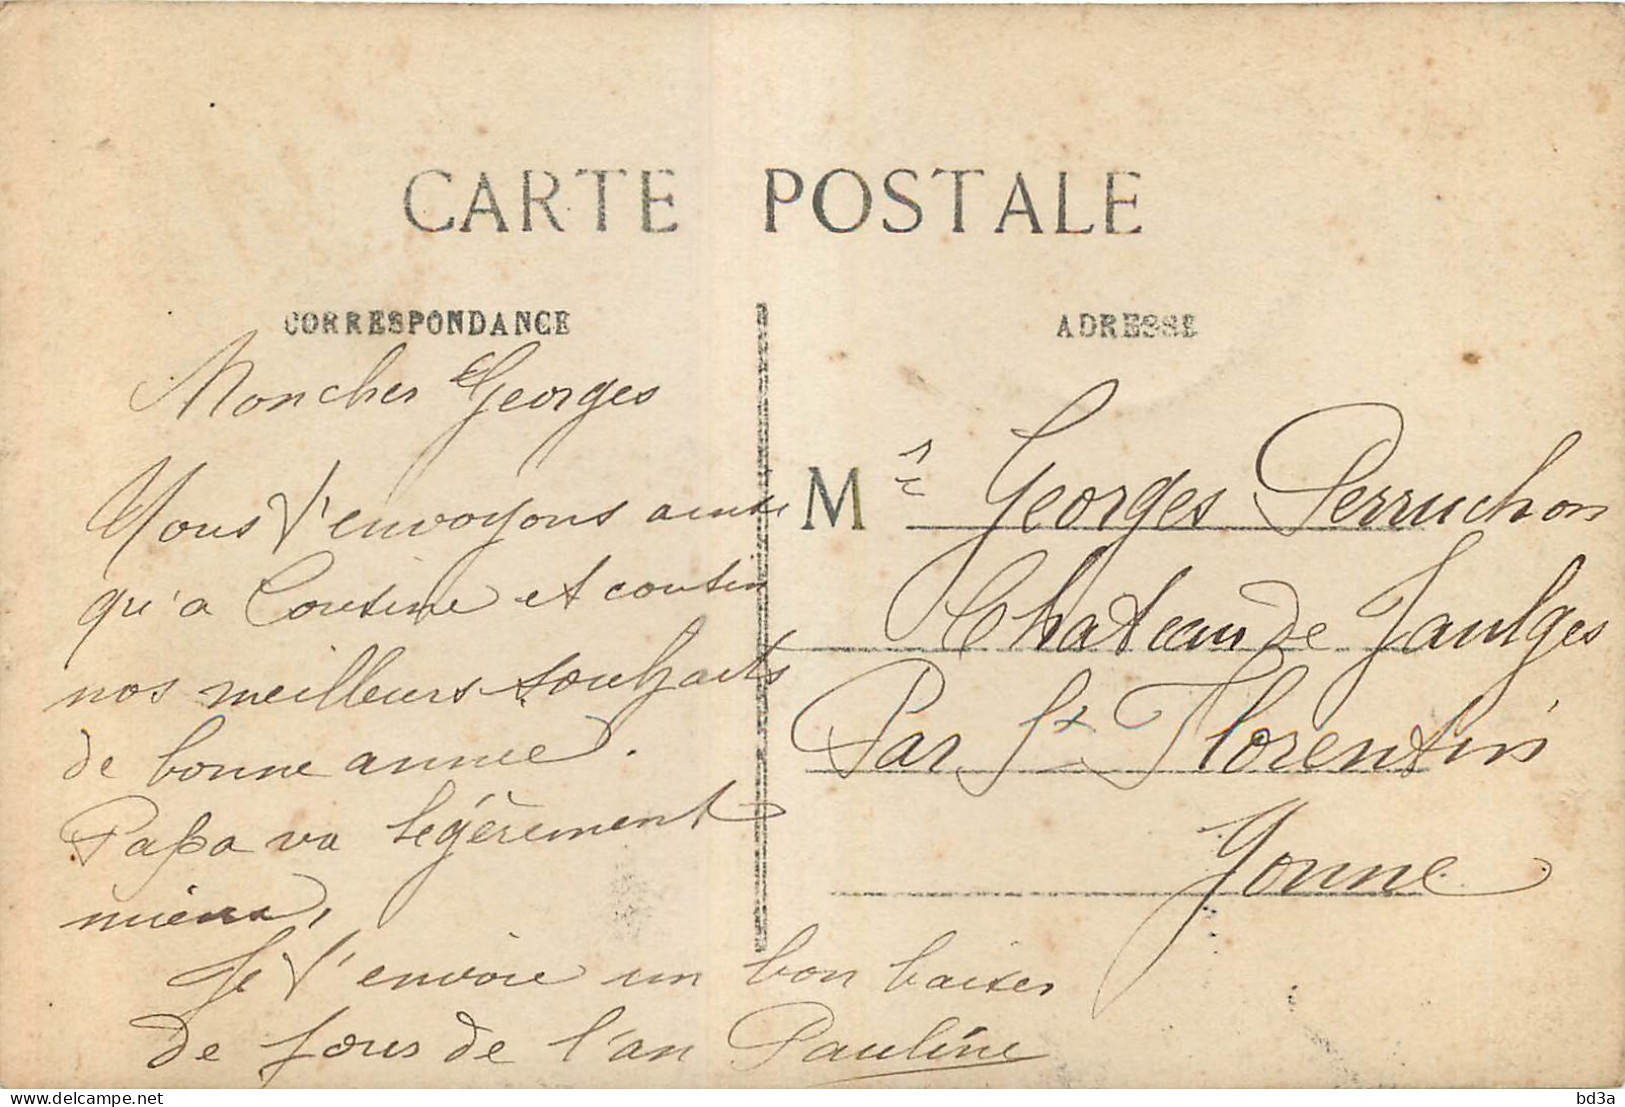 CARTE POSTALE
CORRESPONDANCE
Mon cher Georges
Nous t'envoyons ainsi
qu'a Cousine et cousin
nos meilleurs souhaits
de bonne année.
Papa va légèrement
mieux,
Je t'envoie un bon baiser
de jour de l'an Pauline
ADRESSE
Mr Georges Perruchon
Chateau de Jaulges
Par St Florentin
Yonne
delcampe.net
bd3a